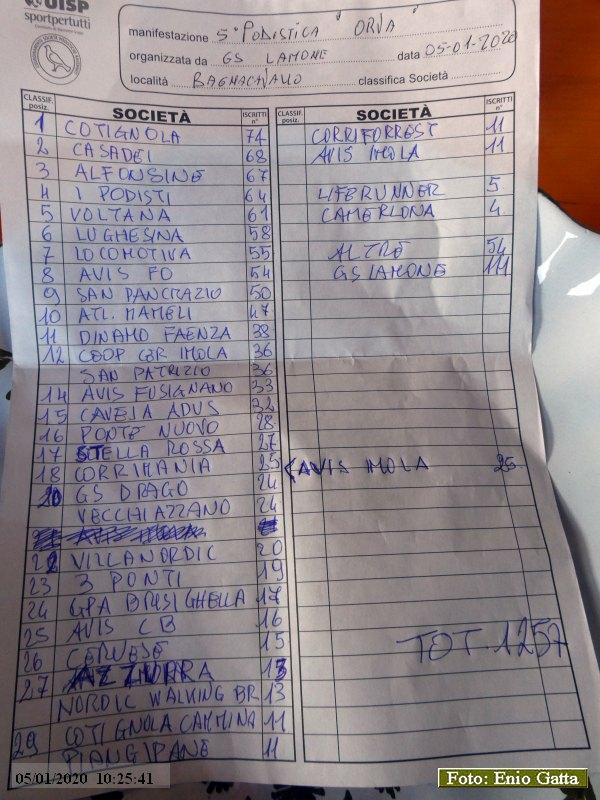 UISP
sportpertutti
manifestazione 5ª PODISTICA "ORVA"
organizzata da GS LAMONE data 05-01-2020
località BAGNACAVALLO classifica Società
CLASSIF. posiz. SOCIETÀ ISCRITTI n°
1 COTIGNOLA 74
2 CASADEI 68
3 ALFONSINE 67
4 I PODISTI 64
5 VOLTANA 61
6 LUGHESINA 58
7 LOCOMOTIVA 55
8 AVIS FO 54
9 SAN PANCRAZIO 50
10 ATL. MAMELI 47
11 DINAMO FAENZA 38
12 COOP CER IMOLA 36
SAN PATRIZIO 36
14 AVIS FUSIGNANO 33
15 CAVEJA ADUS 32
16 PONTE NUOVO 28
17 STELLA ROSSA 27
18 CORRIMANIA 25
20 GS DRAGO 24
VECCHIAZZANO 24
22 VILLANORDIC 20
23 3 PONTI 19
24 GPA BRISIGHELLA 17
25 AVIS CB 16
26 CERVESE 15
27 AZZURRA 13
NORDIC WALKING BR 13
29 COTIGNOLA CAMMINA 11
PIANGIPANE 11
CLASSIF. posiz. SOCIETÀ ISCRITTI n°
CORRIFORREST 11
AVIS IMOLA 11
LIFERUNNER 5
CAMERLONA 4
ALTRE 54
GS LAMONE 111
< AVIS IMOLA 25
TOT. 1257
05/01/2020 10:25:41
Foto: Enio Gatta